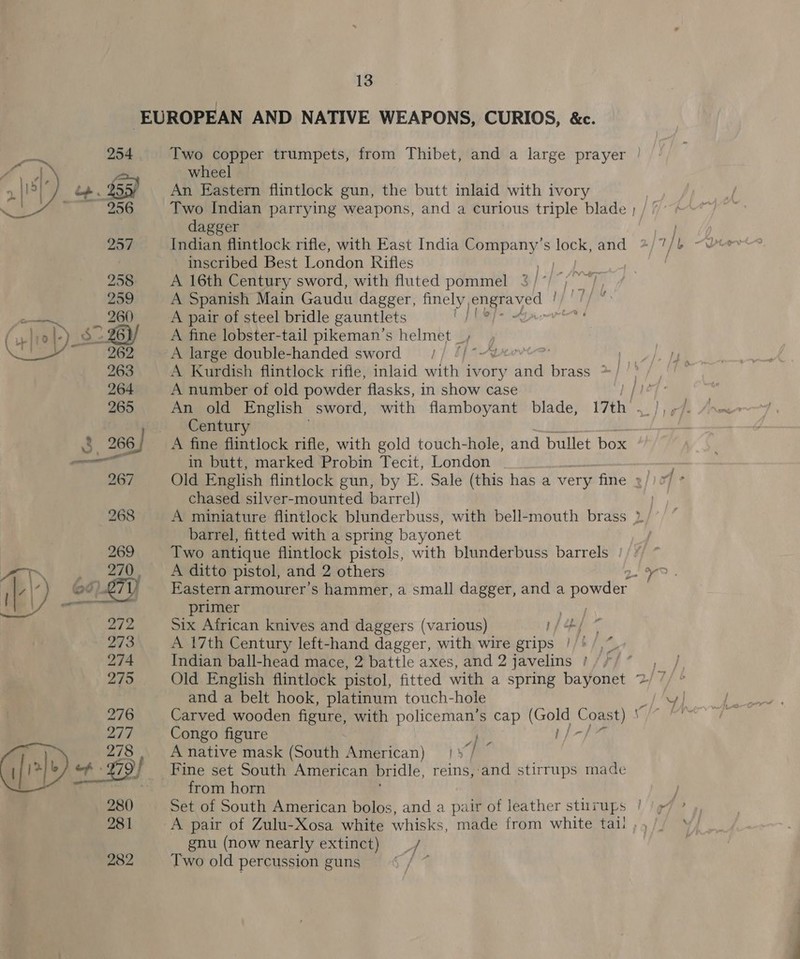 13
EUROPEAN AND NATIVE WEAPONS, CURIOS, &c.
254 Two copper trumpets, from Thibet, and a large prayer
wheel
255 An Eastern flintlock gun, the butt inlaid with ivory
256 Two Indian parrying weapons, and a curious triple blade
dagger
257 Indian flintlock rifle, with East India Company's lock, and
inscribed Best London Rifles
258 A 16th Century sword, with fluted pommel
259 A Spanish Main Gaudu dagger, finely engraved
260 A pair of steel bridle gauntlets
261 A fine lobster-tail pikeman's helmet
262 A large double-handed sword
263 A Kurdish flintlock rifle, inlaid with ivory and brass
264 A number of old powder flasks, in show case
265 An old English sword, with flamboyant blade, 17th
Century
266 A fine flintlock rifle, with gold touch-hole, and bullet box
in butt, marked Probin Tecit, London
267 Old English flintlock gun, by E. Sale (this has a very fine
chased silver-mounted barrel)
268 A miniature flintlock blunderbuss, with bell-mouth brass
barrel, fitted with a spring bayonet
269 Two antique flintlock pistols, with blunderbuss barrels
270 A ditto pistol, and 2 others
271 Eastern armourer's hammer, a small dagger, and a powder
primer
272 Six African knives and daggers (various)
273 A 17th Century left-hand dagger, with wire grips
274 Indian ball-head mace, 2 battle axes, and 2 javelins
275 Old English flintlock pistol, fitted with a spring bayonet
and a belt hook, platinum touch-hole
276 Carved wooden figure, with policeman's cap (Gold Coast)
277 Congo figure
278 A native mask (South American)
279 Fine set South American bridle, reins, and stirrups made
from horn
280 Set of South American bolos, and a pair of leather stirrups
281 A pair of Zulu-Xosa white whisks, made from white tail
gnu (now nearly extinct)
282 Two old percussion guns